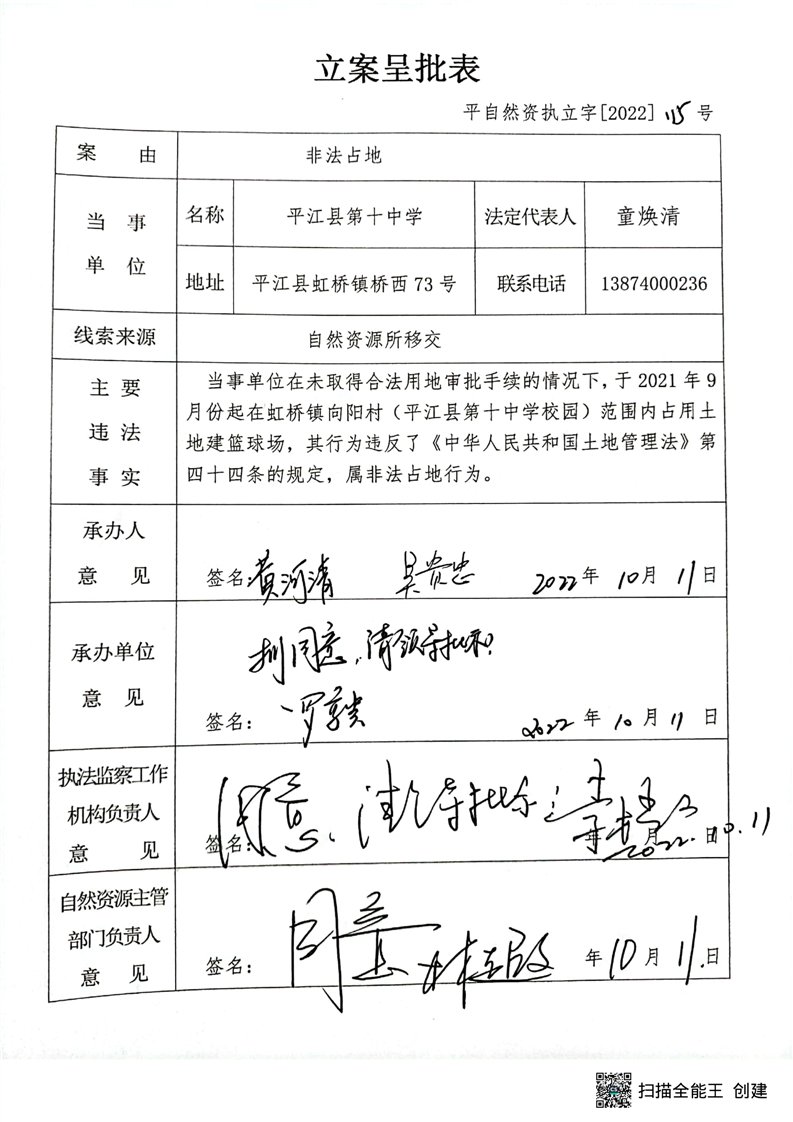 立案呈批表
平自然资执立字[2022] 115 号
案 由 非法占地
当 事 单 位 名称 平江县第十中学 法定代表人 童焕清
地址 平江县虹桥镇桥西 73 号 联系电话 13874000236
线索来源 自然资源所移交
主 要 违 法 事 实
当事单位在未取得合法用地审批手续的情况下，于 2021 年 9
月份起在虹桥镇向阳村（平江县第十中学校园）范围内占用土
地建篮球场，其行为违反了《中华人民共和国土地管理法》第
四十四条的规定，属非法占地行为。
承办人
意 见 签名：黄河清 吴贵忠 2022 年 10 月 11 日
承办单位 同意，请领导批示
意 见 签名： 2022 年 10 月 11 日
执法监察工作
机构负责人 同意，
意 见 签名： 年 月 日 2022.10.11
自然资源主管
部门负责人 同意
意 见 签名： 年 10 月 11 日
扫描全能王 创建